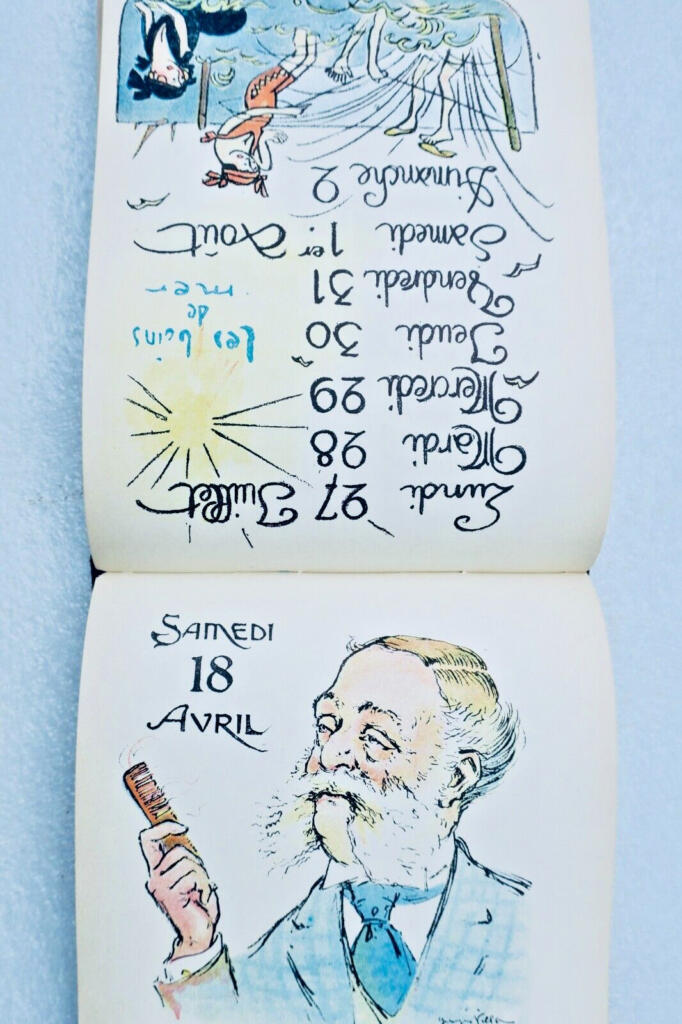 Lundi 27 Juillet
Mardi 28
Mercredi 29
Jeudi 30
Vendredi 31
Samedi 1er Août
Dimanche 2
Les bains
de
mer
SAMEDI
18
AVRIL